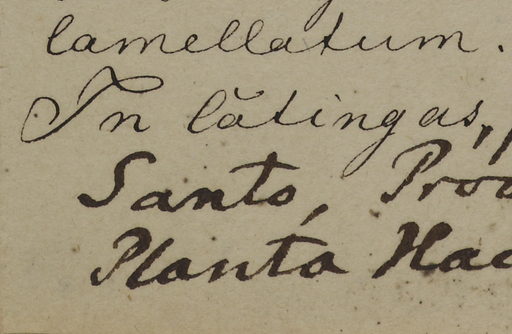 lamellatum.
In lătingas,
Santo, Proo
Planta Hac